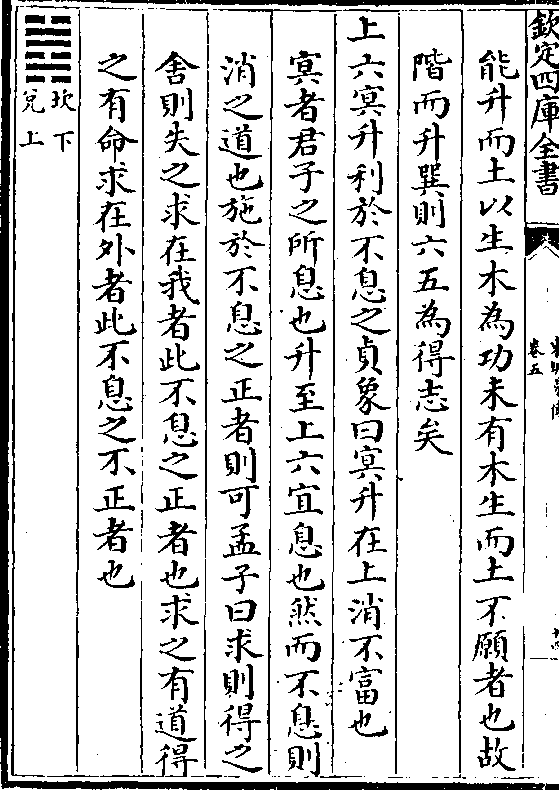 欽定四庫全書
卷五
能升而土以生木為功未有木生而土不願者也故
階而升巽則六五為得志矣
上六冥升利於不息之貞象曰冥升在上消不富也
冥者君子之所息也升至上六宜息也然而不息則
消之道也施於不息之正者則可孟子曰求則得之
舍則失之求在我者此不息之正者也求之有道得
之有命求在外者此不息之不正者也
坎下
兌上